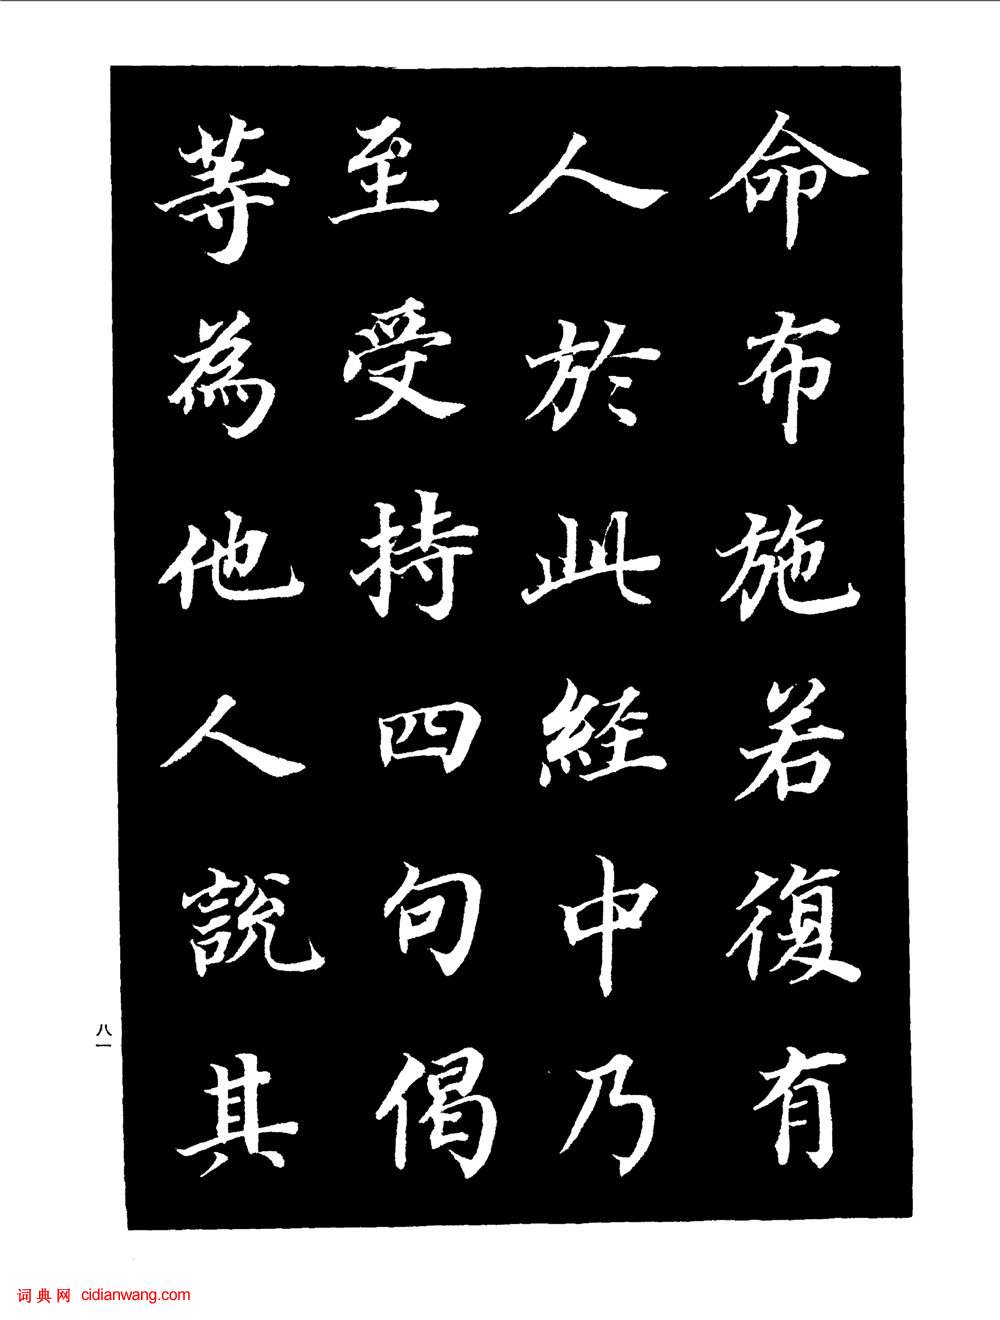 命布施若復有
人於此經中乃
至受持四句偈
等為他人說其
八一
词典网 cidianwang.com